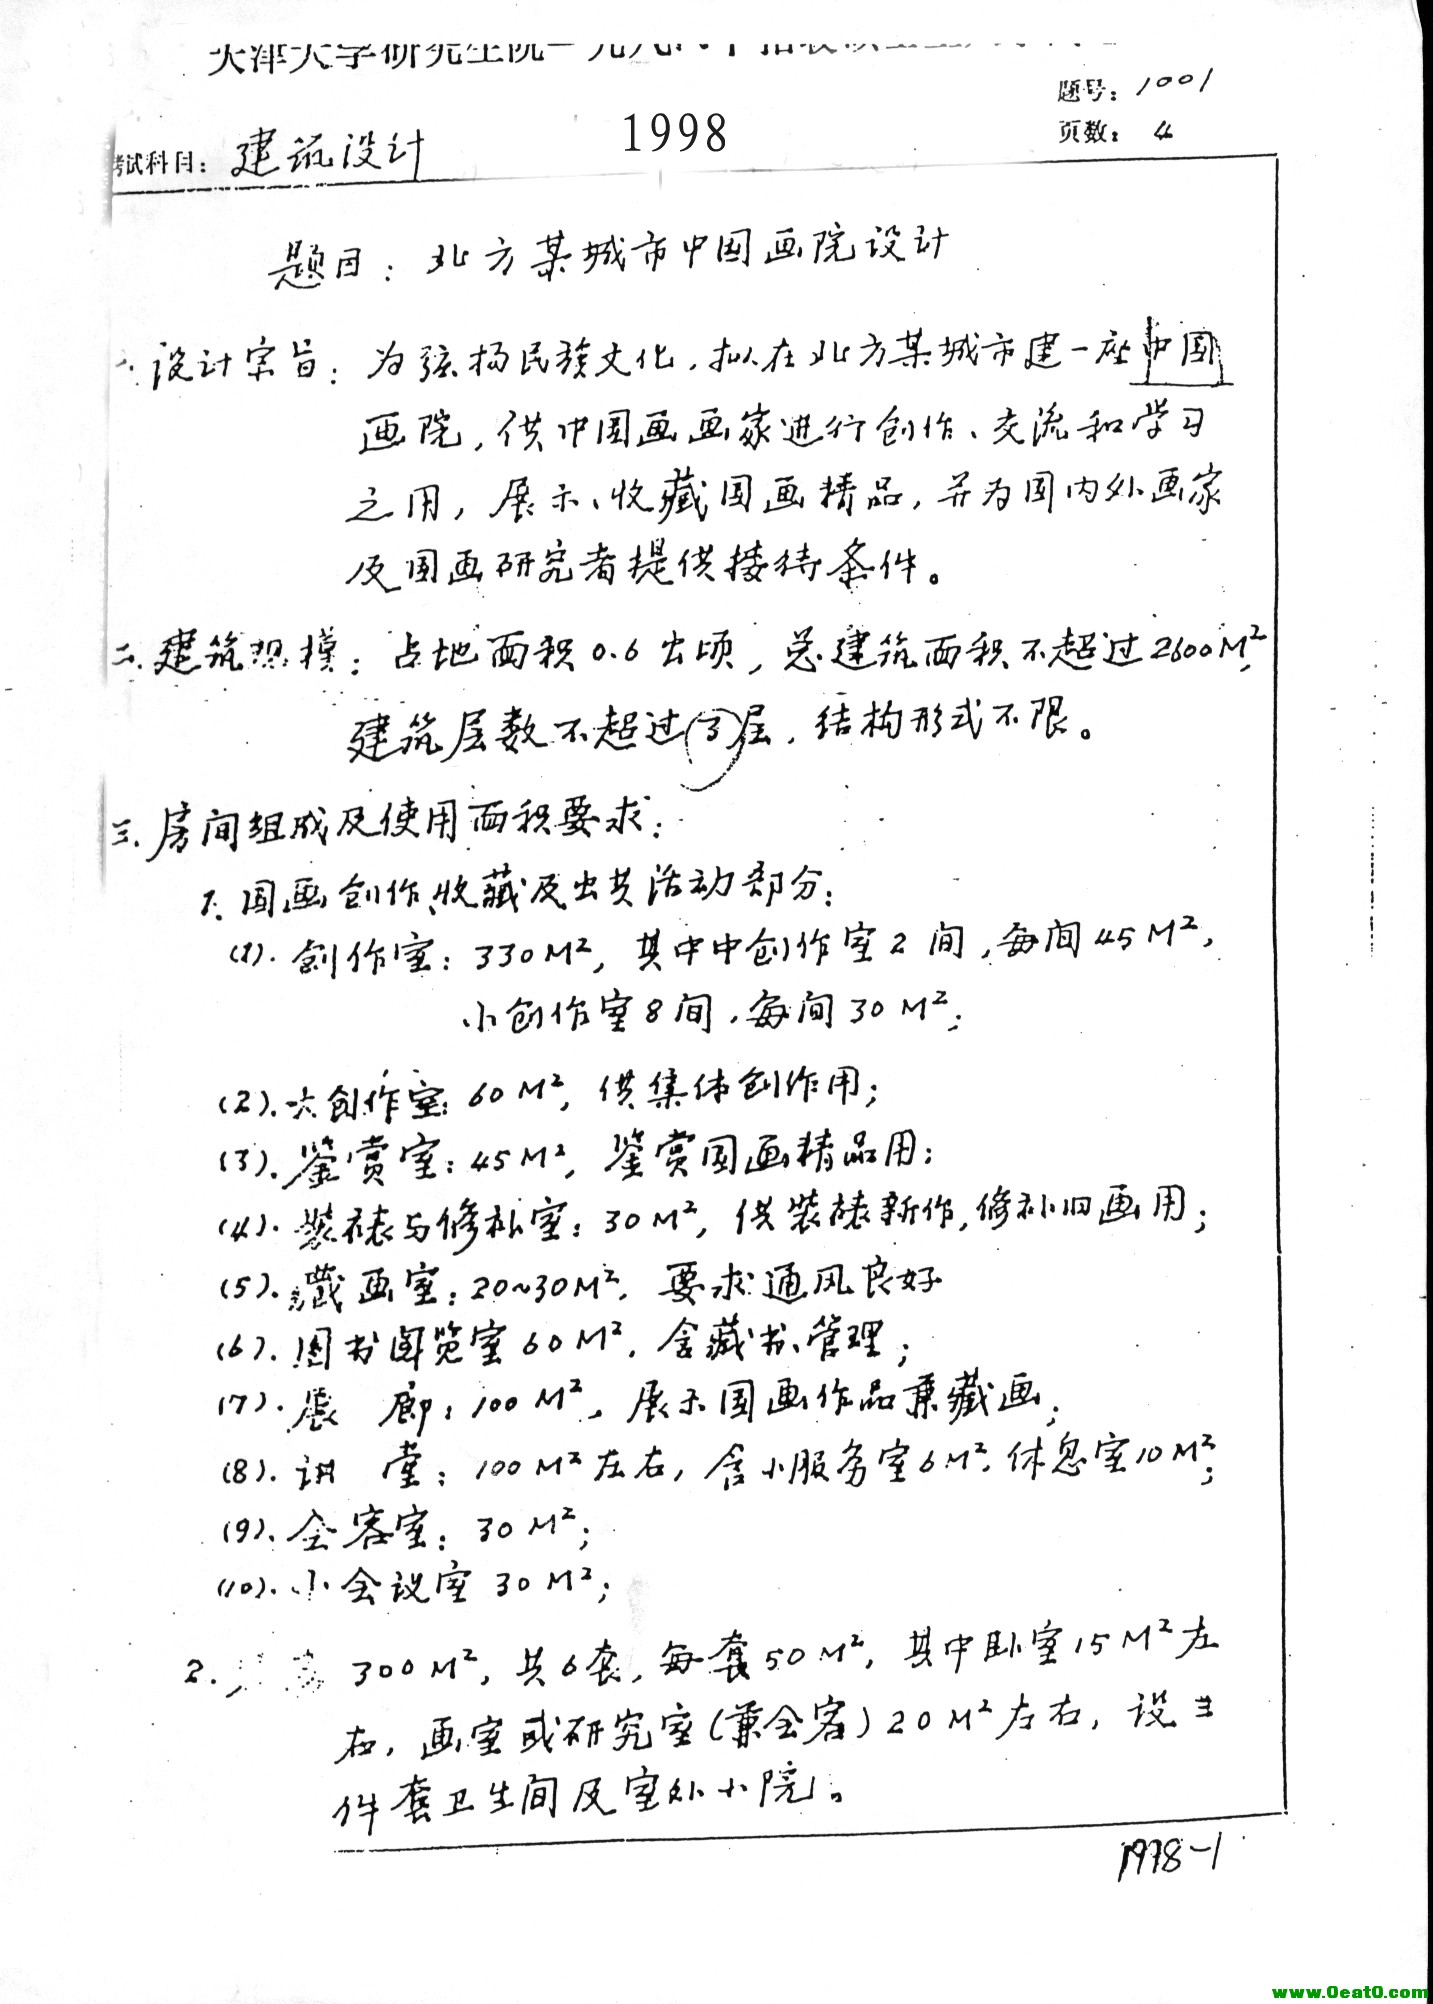 天津大学研究生院一九九八年招
题号：1001
1998
页数：4
考试科目：建筑设计
题目：北方某城市中国画院设计
一、设计宗旨：为弦扬民族文化，拟在北方某城市建一座中国
画院，供中国画画家进行创作、交流和学习
之用，展示、收藏国画精品，并为国内外画家
及国画研究者提供接待条件。
二、建筑规模：占地面积0.6公顷，总建筑面积不超过2600M²，
建筑层数不超过(3)层，结构形式不限。
三、房间组成及使用面积要求：
1、国画创作、收藏及公共活动部分：
(1)、创作室：330M²，其中中创作室2间，每间45M²，
小创作室8间，每间30M²；
(2)、大创作室：60M²，供集体创作用；
(3)、鉴赏室：45M²，鉴赏国画精品用；
(4)、装裱与修补室：30M²，供装裱新作，修补旧画用；
(5)、藏画室：20~30M²，要求通风良好
(6)、图书阅览室60M²，含藏书、管理；
(7)、展廊：100M²，展示国画作品兼藏画；
(8)、讲堂：100M²左右，含小服务室6M²，休息室10M²；
(9)、会客室：30M²；
(10)、小会议室30M²；
2. 300M²，共6套，每套50M²，其中卧室15M²左
右，画室或研究室(兼会客)20M²左右，设三
件套卫生间及室外小院。
1998-1
www.0eat0.com